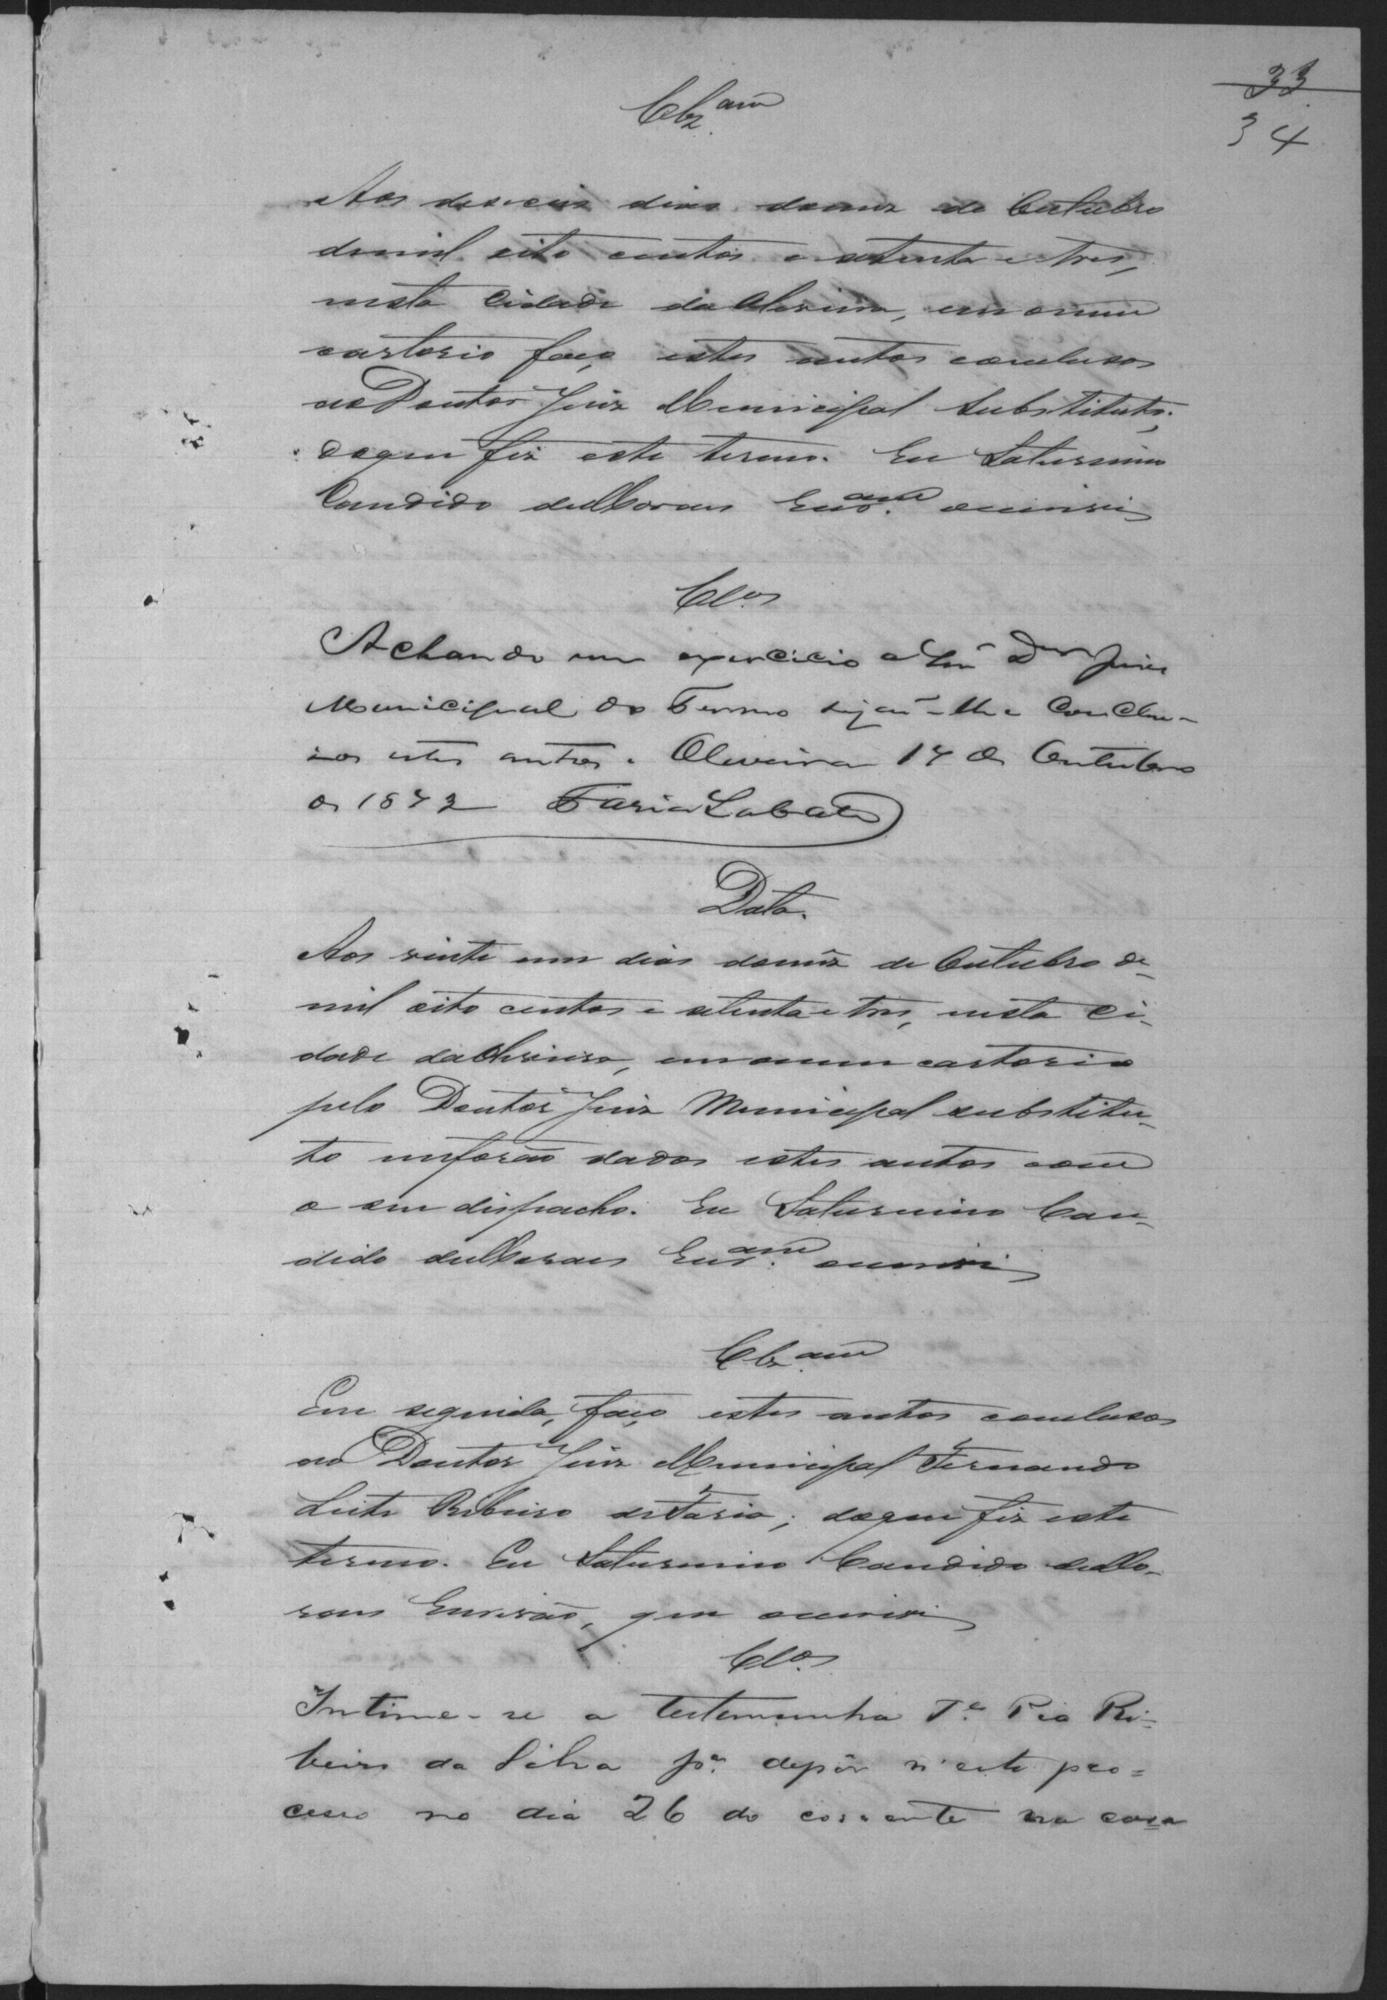 33
34
Clz.am
Aos deseceis dias domez de Outubro
demil oito centos e setenta e tres,
nesta Cidade da Oliveira, em o meu
cartorio faço estes autos conclusos
ao Doutor Juiz Municipal Substituto;
doque fiz este termo. Eu Saturnino
Candido de Moraes Escr.am o escrevi
Cl.os
Achando em exercicio o Sñr Dor Juiz
Municipal do Termo sejão-lhe Conclu-
zos estes autos. Oliveira 17 de Outubro
de 1873 Faria Lobato
Data.
Aos vinte um dias domez de Outubro de
mil oito centos e setenta e tres, nesta Ci-
dade da Oliveira, em o meu cartorio
pelo Doutor Juiz Municipal substitu-
to me forão dados estes autos com
o seu dispacho. Eu Saturnino Can-
dido de Moraes Escr.am o escrevi
Clz.am
Em seguida, faço estes autos conclusos
ao Doutor Juiz Municipal Fernando
Leite Ribeiro de Faria; doque fiz este
termo. Eu Saturnino Candido de Mo-
raes Escrivão, que o escrevi
Cl.os
Intime-se a testemunha Te Pio Ri-
beiro da Silva pa depôr n'este pro-
cesso no dia 26 do corrente na casa